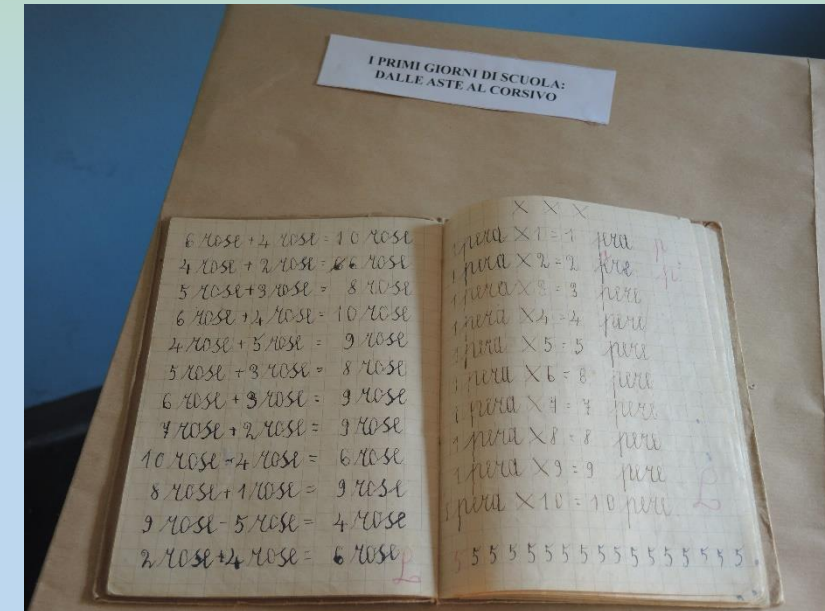 I PRIMI GIORNI DI SCUOLA:
DALLE ASTE AL CORSIVO
6 rose + 4 rose = 10 rose
4 rose + 2 rose = 6 rose
5 rose + 3 rose = 8 rose
6 rose + 4 rose = 10 rose
4 rose + 5 rose = 9 rose
5 rose + 3 rose = 8 rose
6 rose + 3 rose = 9 rose
7 rose + 2 rose = 9 rose
10 rose - 4 rose = 6 rose
8 rose + 1 rose = 9 rose
9 rose - 5 rose = 4 rose
2 rose + 4 rose = 6 rose
X X X
1 pera X 1 = 1 pera
1 pera X 2 = 2 pere
1 pera X 3 = 3 pere
1 pera X 4 = 4 pere
1 pera X 5 = 5 pere
1 pera X 6 = 8 pere
1 pera X 7 = 7 pere
1 pera X 8 = 8 pere
1 pera X 9 = 9 pere
1 pera X 10 = 10 pere
5 5 5 5 5 5 5 5 5 5 5 5 5 5 5 5 5